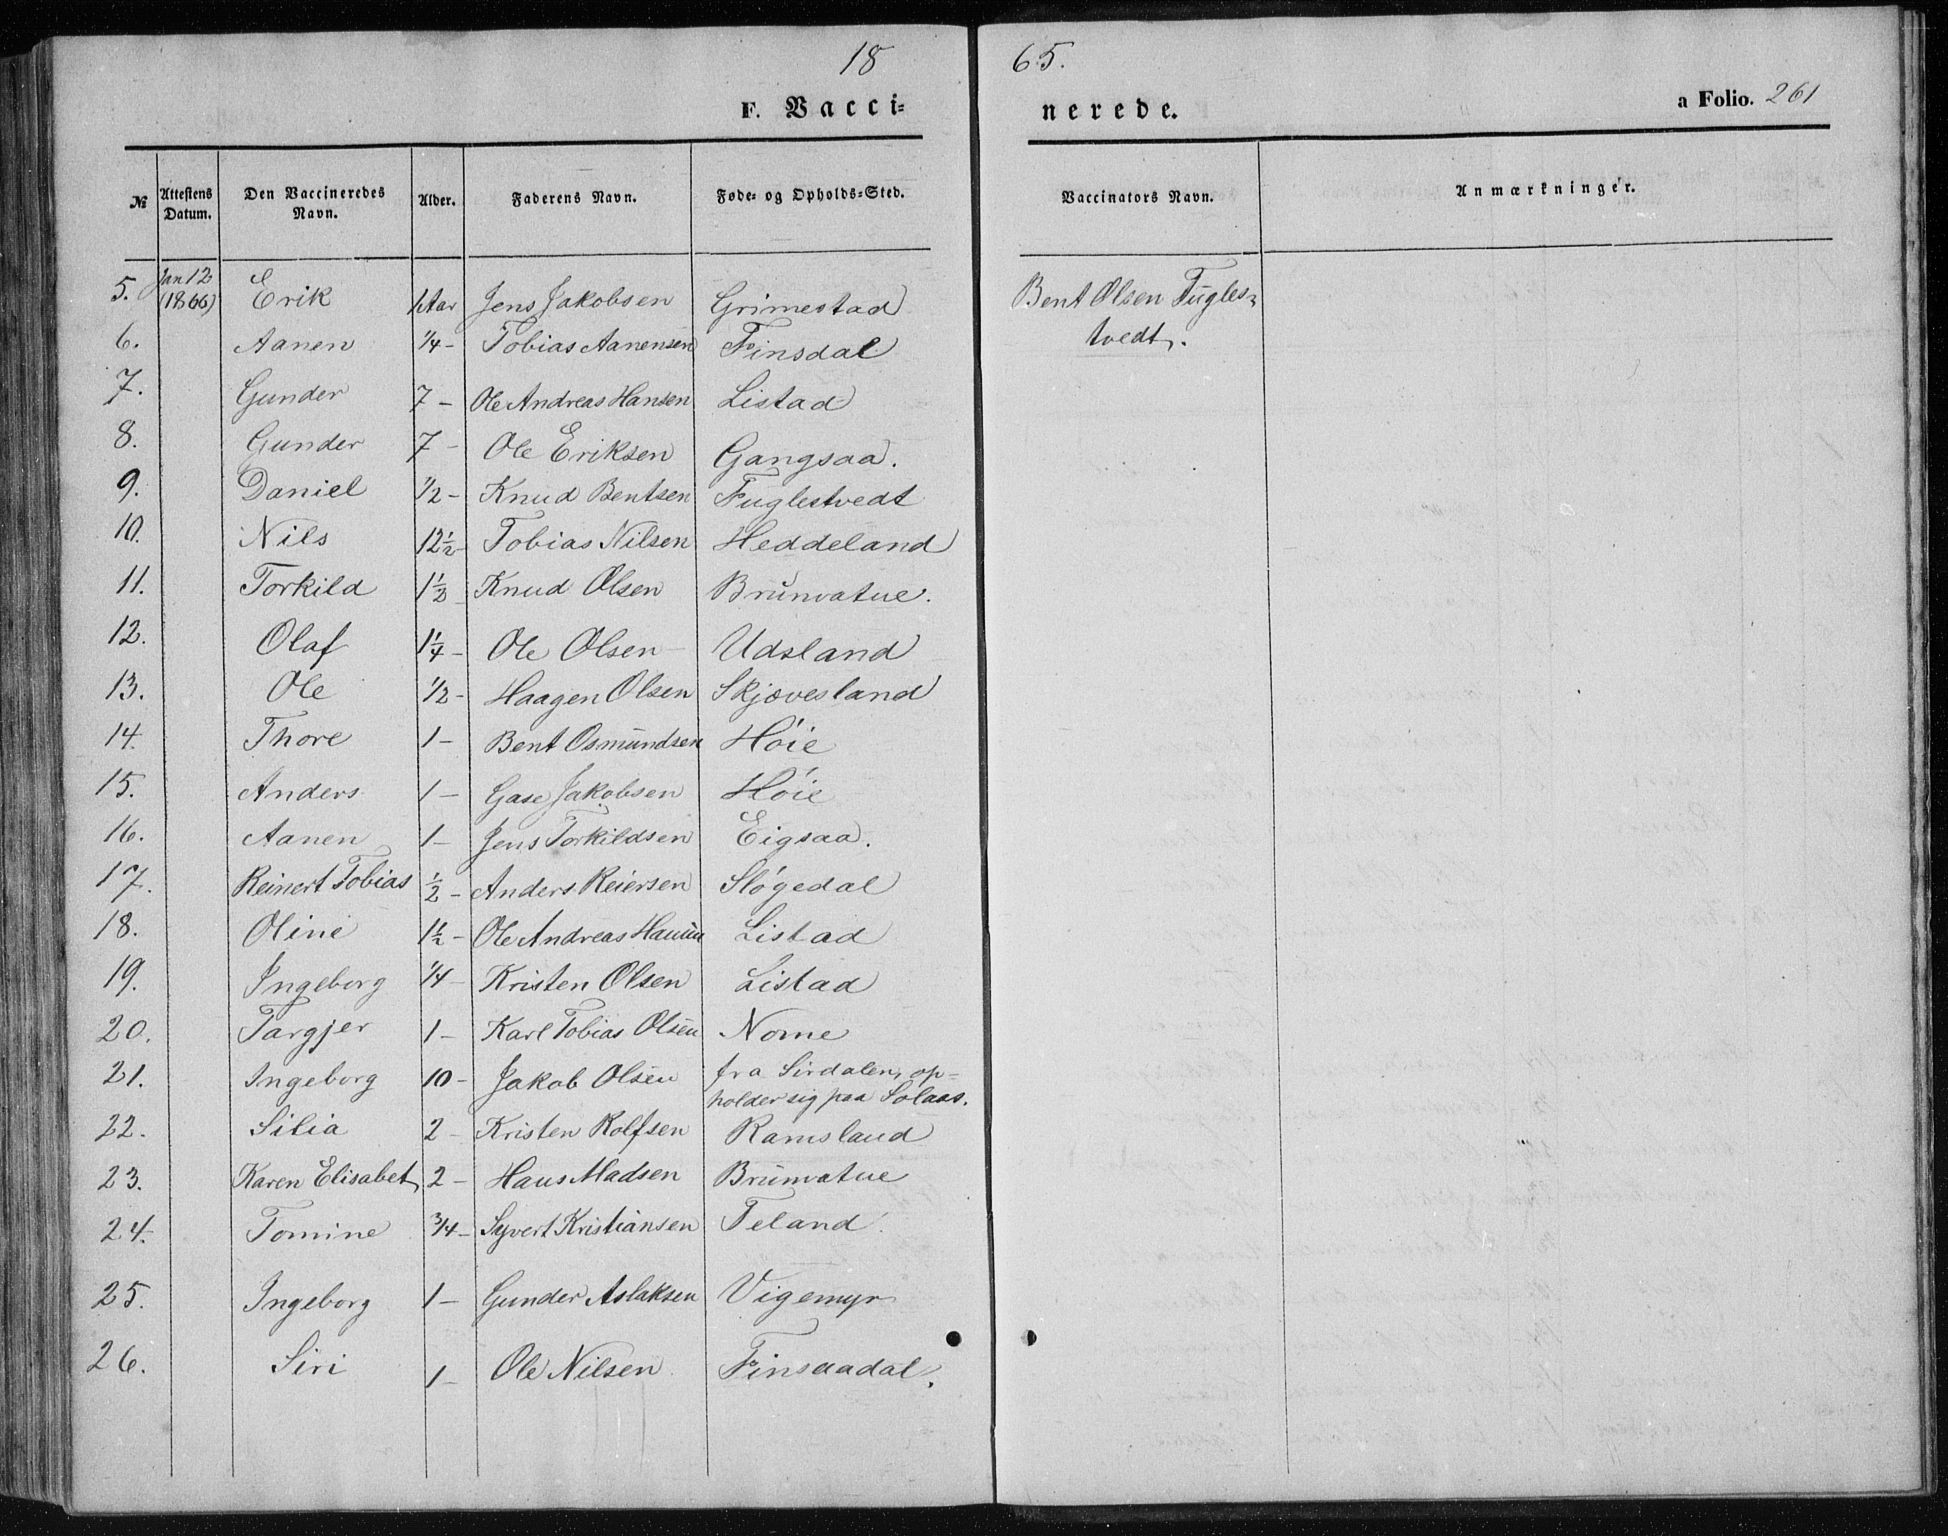 18 65.
F. Vacci= nerede. a Folio. 261
№ Attestens Datum. Den Vaccineredes Navn. Alder. Faderens Navn. Føde= og Opholds=Sted. Vaccinators Navn. Anmærkninger.
5. Jan 12 (1866) Erik 1 Aar Jens Jakobsen Grimestad Bent Olsen Fugles=
6. Aanen 1/4 - Tobias Aanensen Finsdal tvedt.
7. Gunder 7 - Ole Andreas Hansen Listad
8. Gunder 7 - Ole Eriksen Gangsaa.
9. Daniel 1/2 - Knud Bentsen Fuglestvedt
10. Nils 12 1/2 - Tobias Nilsen Heddeland
11. Torkild 1 1/2 - Knud Olsen Brunvatne.
12. Olaf 1 1/4 - Ole Olsen Udsland
13. Ole 1/2 - Haagen Olsen Skjævesland
14. Thore 1 - Bent Osmundsen Høie
15. Anders 1 - Gase Jakobsen Høie
16. Aanen 1 - Jens Torkildsen Eigsaa.
17. Reinert Tobias 1/2 - Anders Reiersen Sløgedal
18. Oline 1 1/2 - Ole Andreas Hansen Listad
19. Ingeborg 1/4 - Kristen Olsen Listad
20. Targjer 1 - Karl Tobias Olsen Nome
21. Ingeborg 10 - Jakob Olsen fra Sirdalen, op=
holder sig paa Solaas.
22. Silia 2 - Kristen Rolfsen Ramsland
23. Karen Elisabet 2 - Hans Madsen Brunvatne
24. Tomine 3/4 - Syvert Kristiansen Teland.
25. Ingeborg 1 - Gunder Aslaksen Vigemyr
26. Siri 1 - Ole Nilsen Finsaadal.